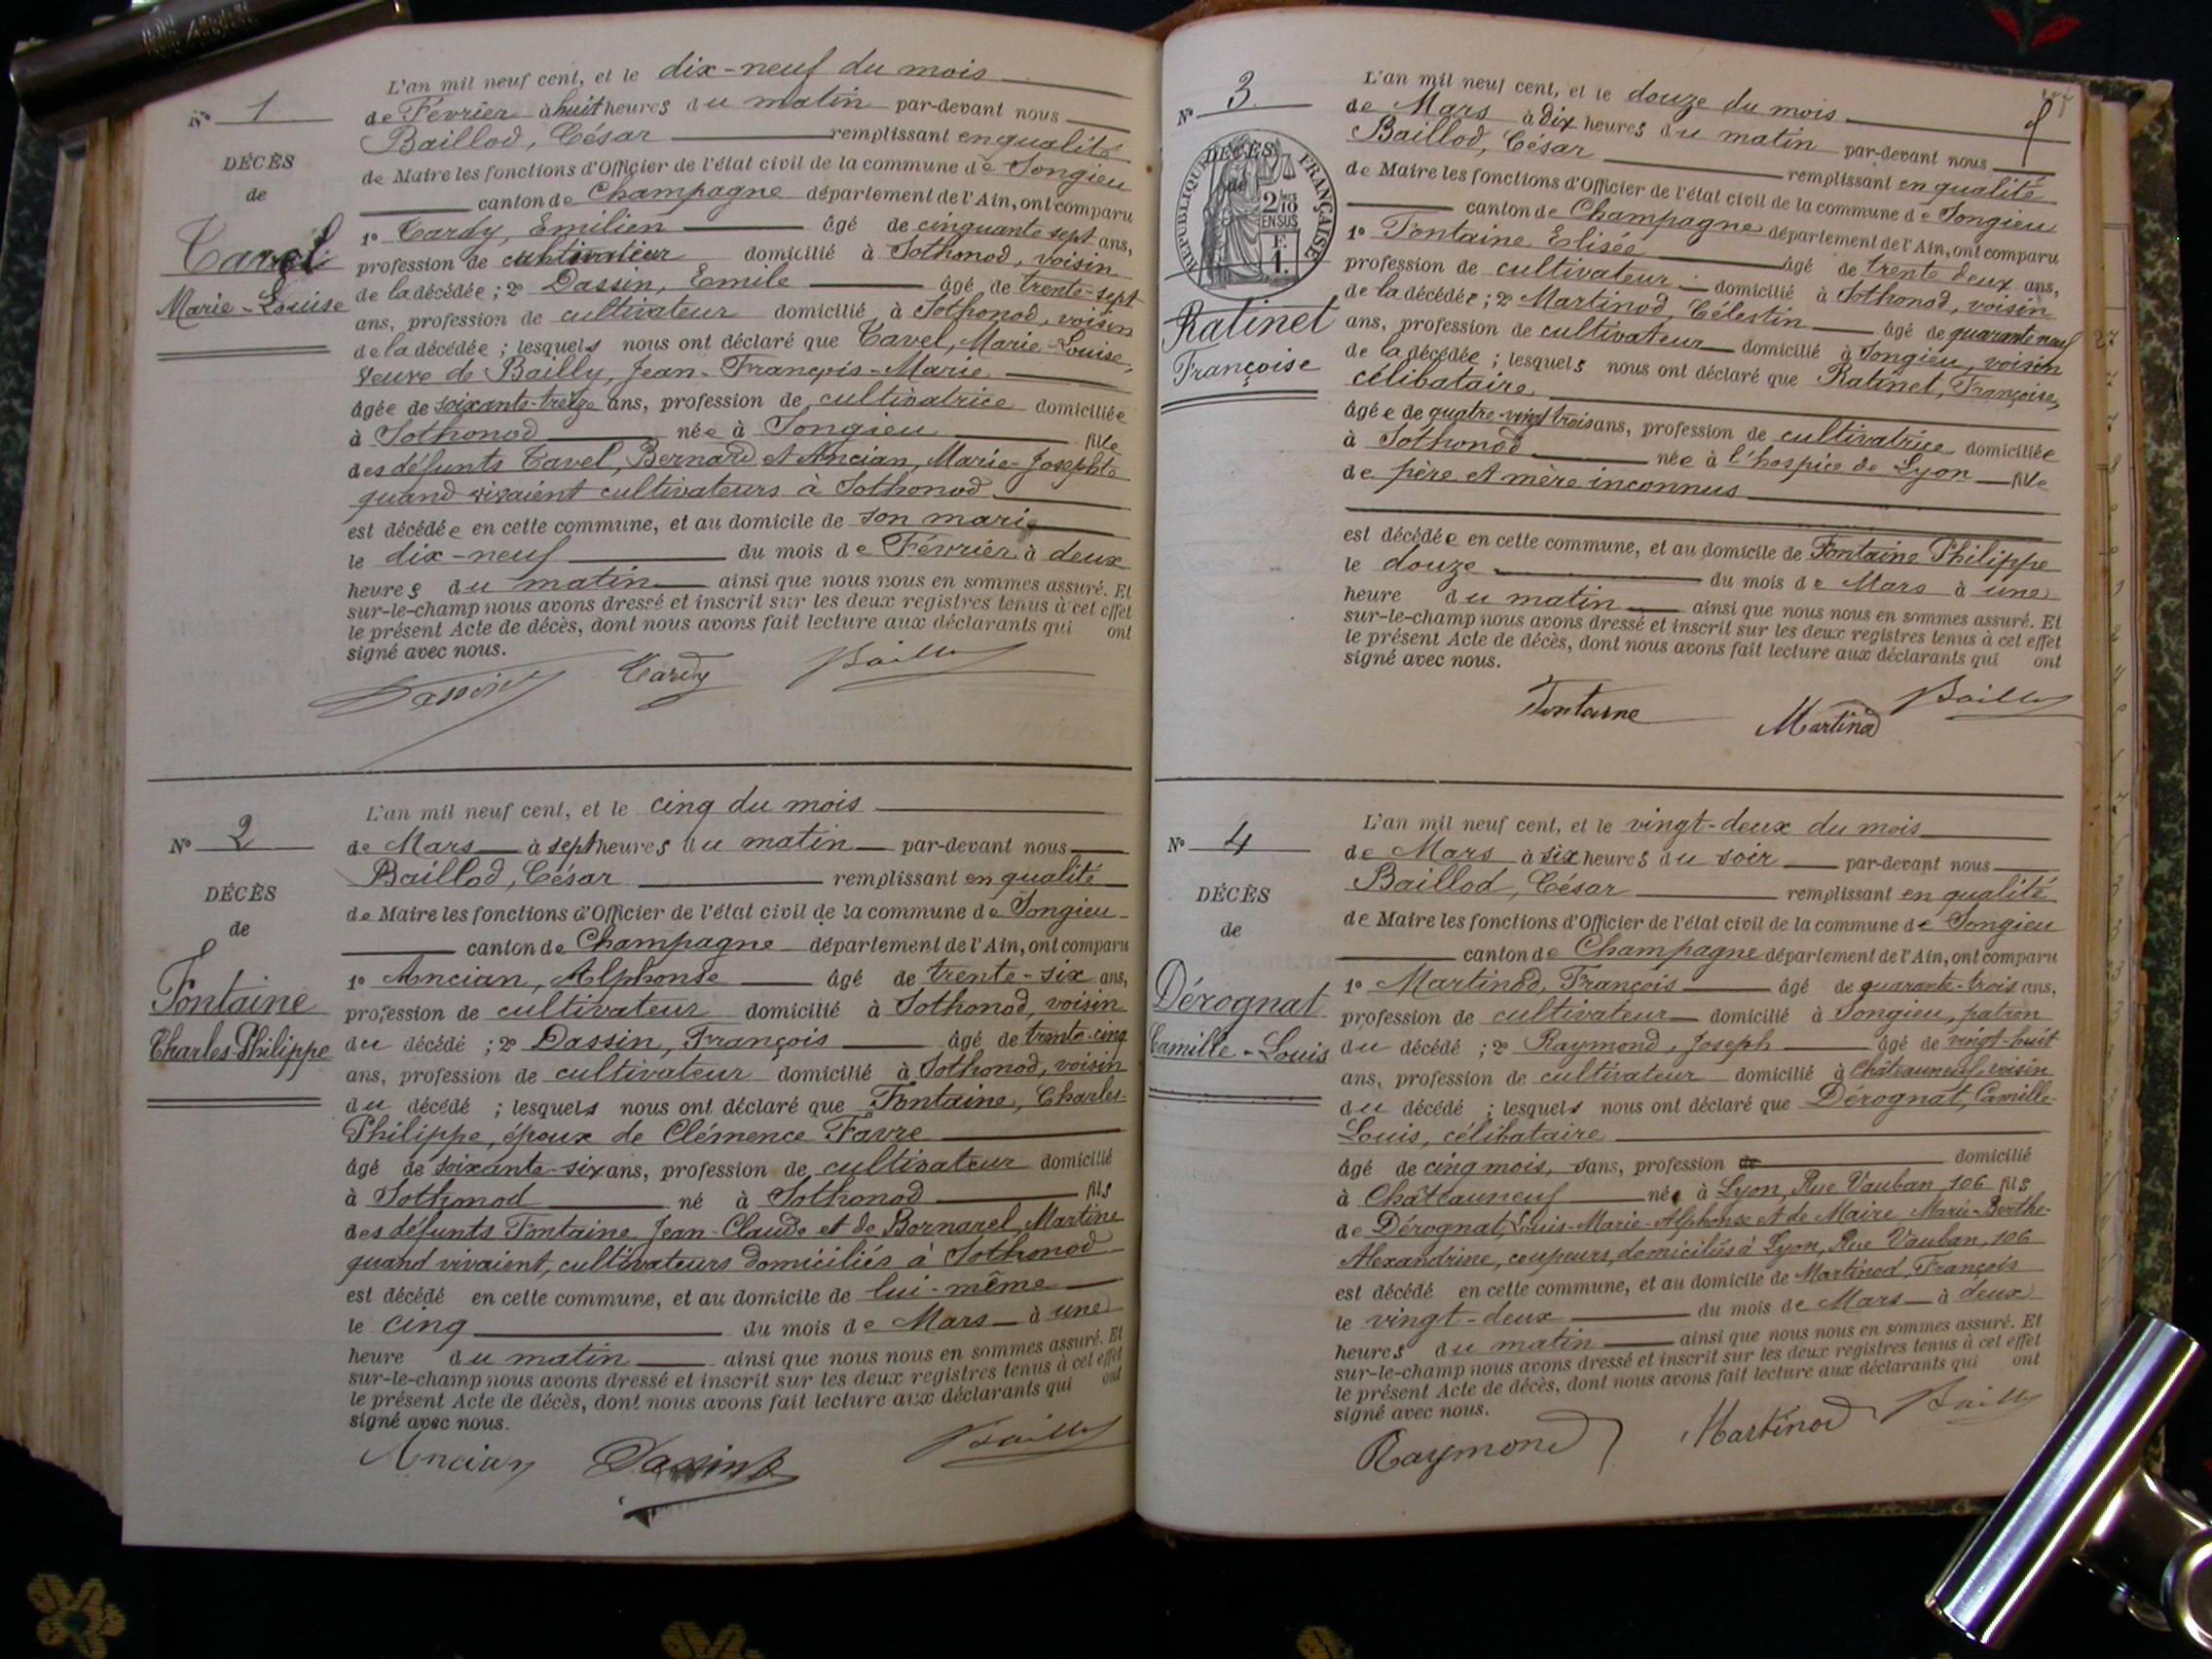 L'an mil neuf cent, et le dix-neuf du mois
N° 1
de Février à huit heures du matin par-devant nous
Baillod, César remplissant en qualité
DÉCÈS
de Maire les fonctions d'Officier de l'état civil de la commune de Songieu
de
canton de Champagne département de l'Ain, ont comparu
Tavel
1° Tardy, Emilien âgé de cinquante sept ans,
profession de cultivateur domicilié à Sothonod, voisin
Marie-Louise
de la décédée ; 2° Dassin, Emile âgé de trente-sept
ans, profession de cultivateur domicilié à Sothonod, voisin
de la décédée ; lesquels nous ont déclaré que Tavel, Marie-Louise,
veuve de Bailly, Jean-François-Marie
âgée de soixante-treize ans, profession de cultivatrice domiciliée
à Sothonod née à Songieu fille
des défunts Tavel, Bernard et Ancian, Marie-Josephte
quand vivaient cultivateurs à Sothonod
est décédée en cette commune, et au domicile de son mari
le dix-neuf du mois de Février à deux
heures du matin ainsi que nous nous en sommes assuré. Et
sur-le-champ nous avons dressé et inscrit sur les deux registres tenus à cet effet
le présent Acte de décès, dont nous avons fait lecture aux déclarants qui ont
signé avec nous.
Dassin Tardy Baillod
L'an mil neuf cent, et le cinq du mois
N° 2
de Mars à sept heures du matin par-devant nous
Baillod, César remplissant en qualité
DÉCÈS
de Maire les fonctions d'Officier de l'état civil de la commune de Songieu
de
canton de Champagne département de l'Ain, ont comparu
Fontaine
1° Ancian, Alphonse âgé de trente-six ans,
profession de cultivateur domicilié à Sothonod, voisin
Charles-Philippe
du décédé ; 2° Dassin, François âgé de trente-cinq
ans, profession de cultivateur domicilié à Sothonod, voisin
du décédé ; lesquels nous ont déclaré que Fontaine, Charles-
Philippe, époux de Clémence Favre
âgé de soixante-six ans, profession de cultivateur domicilié
à Sothonod né à Sothonod fils
des défunts Fontaine Jean-Claude et de Bornarel, Martine
quand vivaient, cultivateurs domiciliés à Sothonod
est décédé en cette commune, et au domicile de lui-même
le cinq du mois de Mars à une
heure du matin ainsi que nous nous en sommes assuré. Et
sur-le-champ nous avons dressé et inscrit sur les deux registres tenus à cet effet
le présent Acte de décès, dont nous avons fait lecture aux déclarants qui ont
signé avec nous.
Ancian Dassin Baillod
L'an mil neuf cent, et le douze du mois
N° 3
de Mars à dix heures du matin par-devant nous
Baillod, César remplissant en qualité
DÉCÈS
de
RÉPUBLIQUE FRANÇAISE
2/10
EN SUS
F.
1.
de Maire les fonctions d'Officier de l'état civil de la commune de Songieu
canton de Champagne département de l'Ain, ont comparu
1° Fontaine Elisée âgé de trente deux ans,
profession de cultivateur domicilié à Sothonod, voisin
de la décédée ; 2° Martinod, Célestin âgé de quarante neuf
Ratinet
ans, profession de cultivateur domicilié à Songieu, voisin
Françoise
de la décédée ; lesquels nous ont déclaré que Ratinet, Françoise,
célibataire
âgée de quatre-vingt trois ans, profession de cultivatrice domiciliée
à Sothonod née à l'hospice de Lyon fille
de père et mère inconnus
est décédée en cette commune, et au domicile de Fontaine Philippe
le douze du mois de Mars à une
heure du matin ainsi que nous nous en sommes assuré. Et
sur-le-champ nous avons dressé et inscrit sur les deux registres tenus à cet effet
le présent Acte de décès, dont nous avons fait lecture aux déclarants qui ont
signé avec nous.
Fontaine Martinod Baillod
L'an mil neuf cent, et le vingt-deux du mois
N° 4
de Mars à six heures du soir par-devant nous
Baillod, César remplissant en qualité
DÉCÈS
de Maire les fonctions d'Officier de l'état civil de la commune de Songieu
de
canton de Champagne département de l'Ain, ont comparu
Dérognat
1° Martinod, François âgé de quarante-trois ans,
profession de cultivateur domicilié à Songieu, patron
Camille-Louis
du décédé ; 2° Raymond, Joseph âgé de vingt-huit
ans, profession de cultivateur domicilié à Châteauneuf, voisin
du décédé ; lesquels nous ont déclaré que Dérognat, Camille-
Louis, célibataire
âgé de cinq mois, sans, profession de domicilié
à Châteauneuf né à Lyon, Rue Vauban, 106 fils
de Dérognat, Louis-Marie-Alphonse et de Maire, Marie-Berthe-
Alexandrine, coupeurs, domiciliés à Lyon, Rue Vauban, 106
est décédé en cette commune, et au domicile de Martinod, François
le vingt-deux du mois de Mars à deux
heures du matin ainsi que nous nous en sommes assuré. Et
sur-le-champ nous avons dressé et inscrit sur les deux registres tenus à cet effet
le présent Acte de décès, dont nous avons fait lecture aux déclarants qui ont
signé avec nous.
Raymond Martinod Baillod